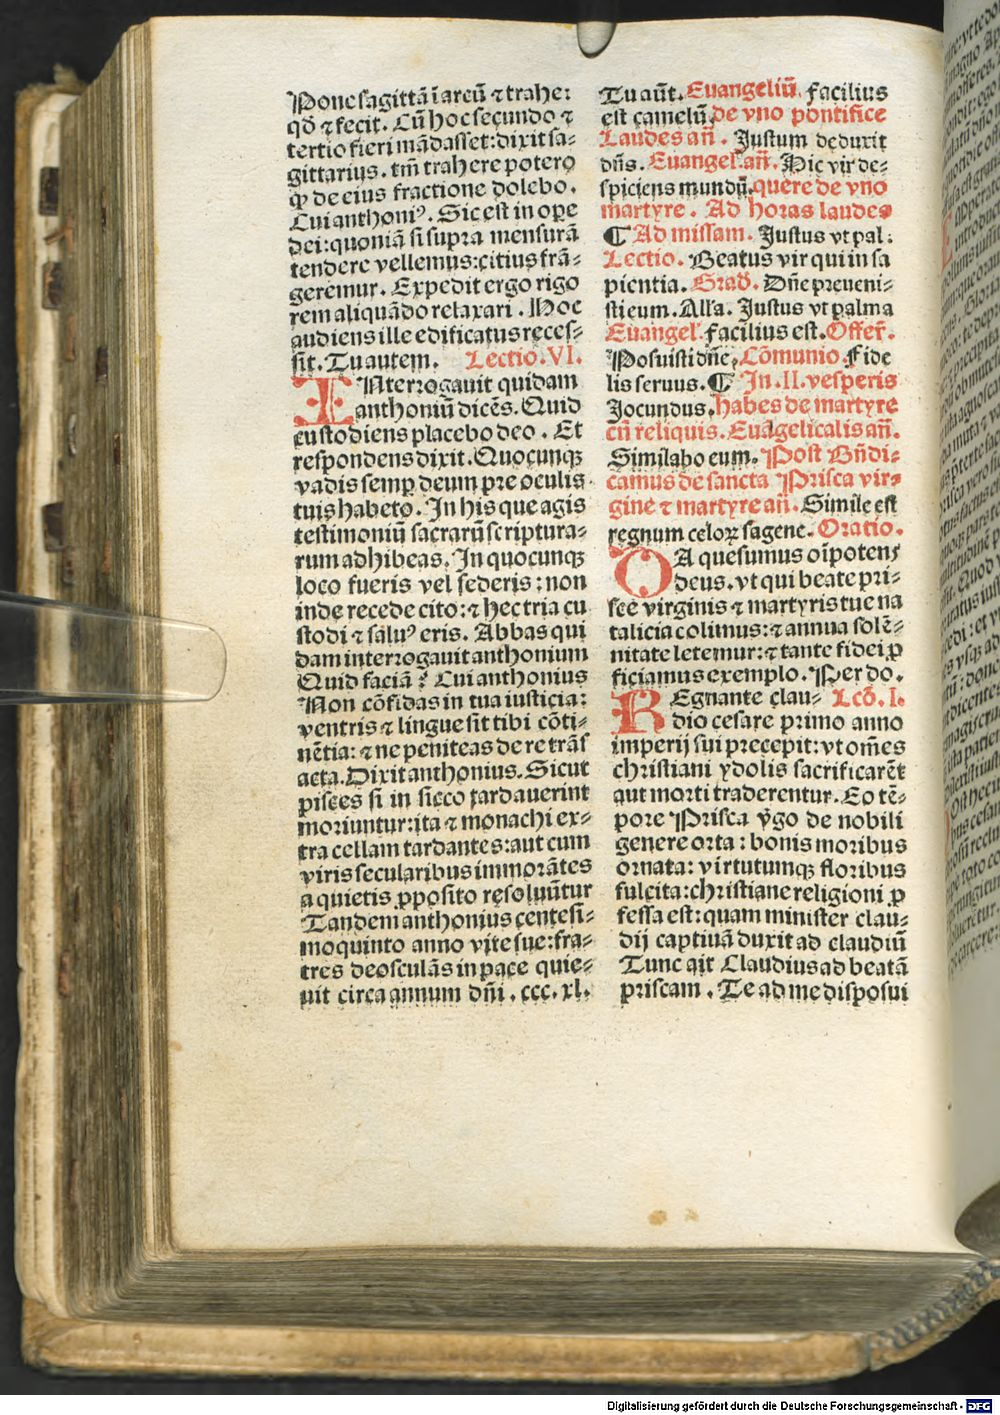 Pone sagittā ī arcū ⁊ trahe:
qḋ ⁊ fecit. Cū hoc secundo ⁊
tertio fieri mādasset: dixit sa⸗
gittarius. tm̄ trahere potero
ꝙ de eius fractione dolebo.
Cui anthoniꝰ. Sic est in ope
dei: quoniā si supra mensurā
tendere vellemus: citius frā⸗
geremur. Expedit ergo rigo
rem aliquādo relaxari. Hoc
audiens ille edificatus reces⸗
sit. Tu autem. Lectio. VI.
INterrogauit quidam
anthoniū dicēs. Quid
custodiens placebo deo. Et
respondens dixit. Quocunqꝫ
vadis semp deum pre oculis
tuis habeto. In his que agis
testimoniū sacrarū scriptura⸗
rum adhibeas. In quocunqꝫ
loco fueris vel sederis: non
inde recede cito: ⁊ hec tria cu
stodi ⁊ saluꝰ eris. Abbas qui
dam interrogauit anthonium
Quid faciā? Cui anthonius
Non cōfidas in tua iusticia:
ventris ⁊ lingue sit tibi cōti⸗
nētia: ⁊ ne peniteas de re trās
acta. Dixit anthonius. Sicut
pisces si in sicco tardauerint
moriuntur: ita ⁊ monachi ex⸗
tra cellam tardantes: aut cum
viris secularibus immorātes
a quietis ꝓposito resoluūtur
Tandem anthonius centesi⸗
moquinto anno vite sue: fra⸗
tres deosculās in pace quie⸗
uit circa annum dn̄i. ccc. xl.
Tu aūt. Euangeliū. facilius
est camelū. de vno pontifice
Laudes añ. Justum deduxit
dn̄s. Euangel. añ. Hic vir de⸗
spiciens mundū. quere de vno
martyre. Ad horas laudes
¶ Ad missam. Justus vt pal.
Lectio. Beatus vir qui in sa
pientia. Grad. Dn̄e preueni⸗
sti eum. Alla. Justus vt palma
Euangel. facilius est. Offer̄.
Posuisti dn̄e. Cōmunio. Fide
lis seruus. ¶ In. II. vesperis
Jocundus. habes de martyre
cū reliquis. Euāgelicalis añ.
Similabo eum. Post Bn̄di⸗
camus de sancta Prisca vir⸗
gine ⁊ martyre añ. Simile est
regnum celoꝝ sagene. Oratio.
DA quesumus oīpotens
deus. vt qui beate pri⸗
sce virginis ⁊ martyris tue na
talicia colimus: ⁊ annua solē⸗
nitate letemur: ⁊ tante fidei ꝓ
ficiamus exemplo. Per do.
REgnante clau⸗ Lcō. I.
dio cesare primo anno
imperij sui precepit: vt om̄es
christiani ydolis sacrificarēt
aut morti traderentur. Eo tē⸗
pore Prisca v̄go de nobili
genere orta: bonis moribus
ornata: virtutumqꝫ floribus
fulcita: christiane religioni ꝓ
fessa est: quam minister clau⸗
dij captiuā duxit ad claudiū
Tunc ait Claudius ad beatā
priscam. Te ad me disposui
Digitalisierung gefördert durch die Deutsche Forschungsgemeinschaft - DFG